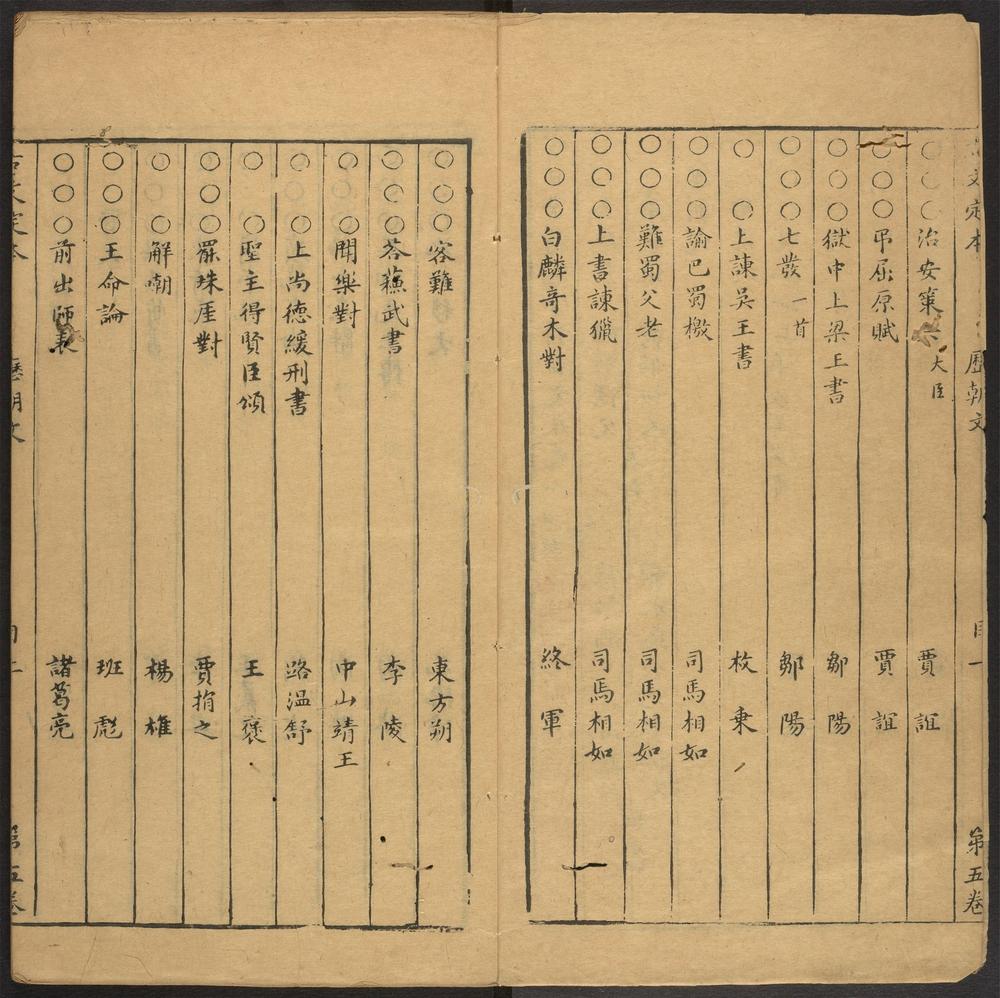 文定本 歷朝文 目一 第五卷
○○○治安策 大臣 賈誼
○○○弔屈原賦 賈誼
○○○獄中上梁王書 鄒陽
○○○七發 一首 鄒陽
○上諫吳王書 枚乗
○○○諭巴蜀檄 司馬相如
○○○難蜀父老 司馬相如
○○○上書諫獵 司馬相如
○○○白麟奇木對 終軍
○○○客難 東方朔
○○○荅蘓武書 李陵
○○聞樂對 中山靖王
○○上尚德緩刑書 路温舒
○○聖主得賢臣頌 王褒
○○○罷珠厓對 賈捐之
○○解嘲 楊雄
○○○王命論 班彪
○○○前出師表 諸葛亮
文定本 歷朝文 第五卷